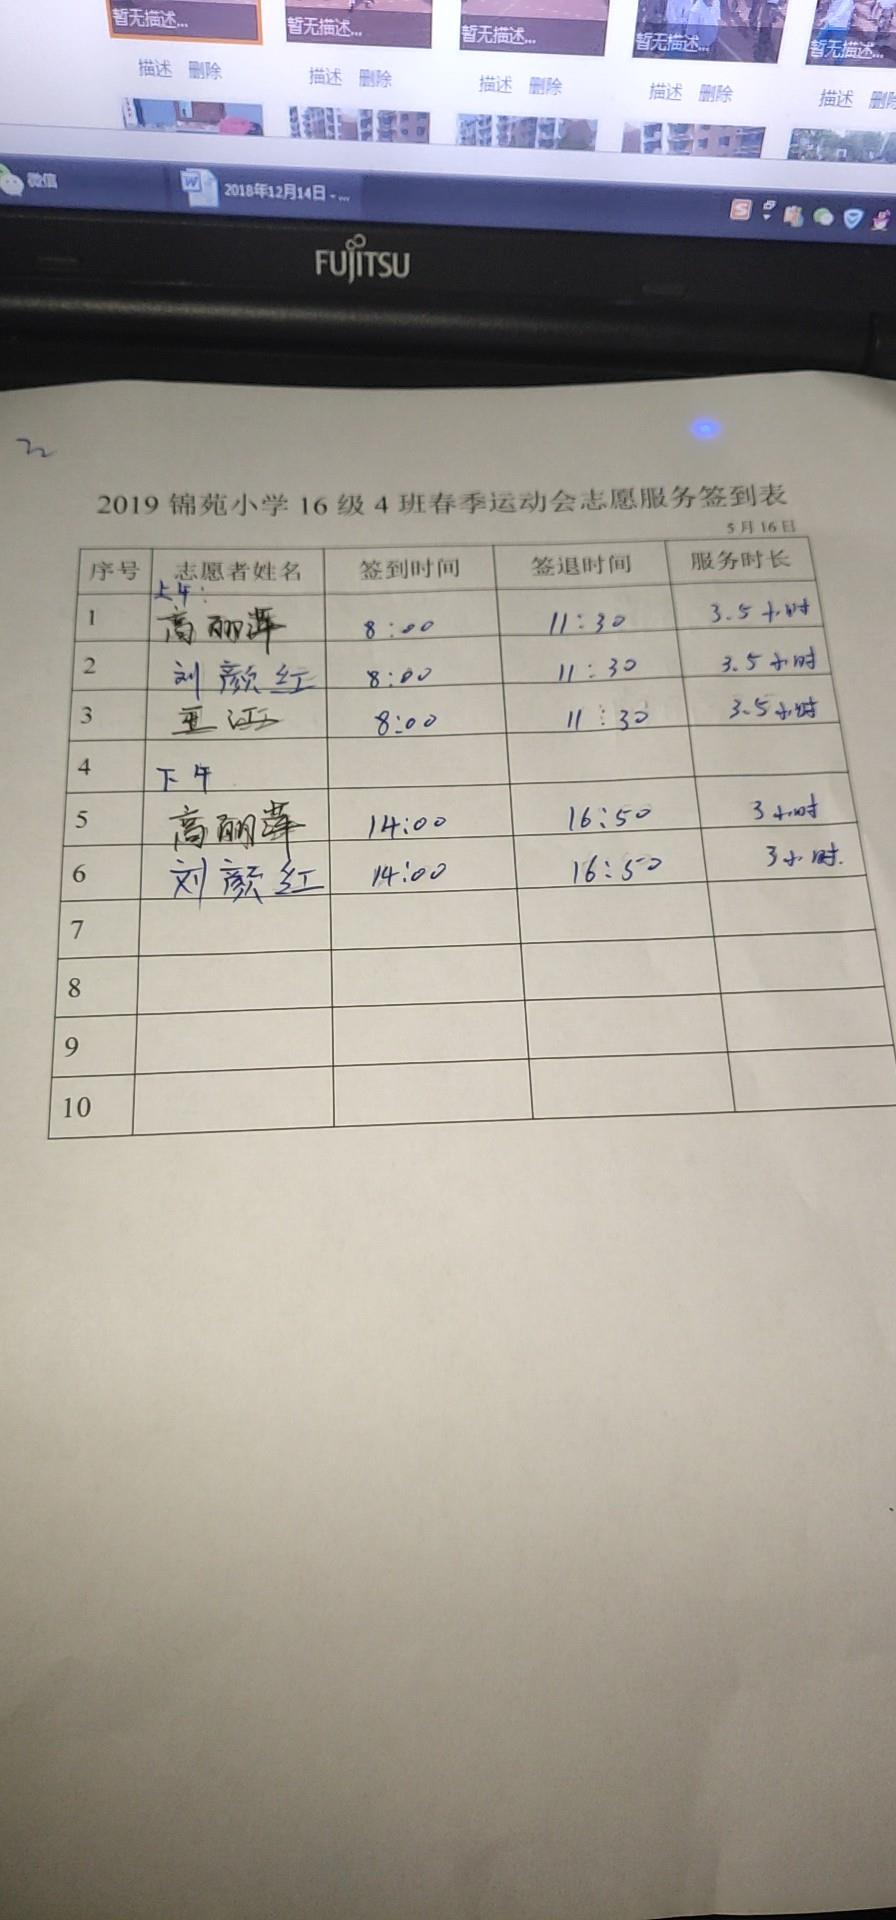 暂无描述... 暂无描述... 暂无描述... 暂无描述... 暂无描述...
描述 删除 描述 删除 描述 删除 描述 删除 描述 删除
微信 2018年12月14日 - ...
FUJITSU
2019 锦苑小学 16 级 4 班春季运动会志愿服务签到表
5 月 16 日
序号 志愿者姓名 签到时间 签退时间 服务时长
上午:
1 高丽萍 8:00 11:30 3.5小时
2 刘颜红 8:00 11:30 3.5小时
3 8:00 11:30 3.5小时
4 下午
5 高丽萍 14:00 16:50 3小时
6 刘颜红 14:00 16:50 3小时.
7
8
9
10